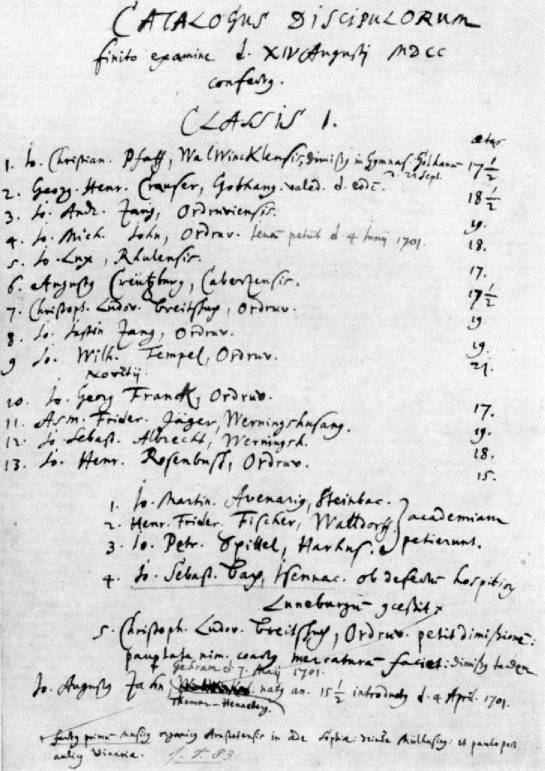 CATALOGUS DISCIPULORUM
finito examine d. XIV Augusti MDCC
confectus.
CLASSIS I.
ætas.
1. Io. Christian. Pfaff, Walwincklensis, dimissus in Gymnas. Gothanum 17 1/2
d. 21 Sept.
2. Georg. Henr. Crauser, Gothanus valed. d. eod. 18 1/2
3. Io. Andr. Jung, Ordruviensis. 19.
4. Io. Mich. John, Ordruv. petiit d. 4 Iunij 1701. 18.
5. Io. Lux, Rhulensis. 17.
6. Augustus Creützburg, Caberzensis. 17 1/2
7. Christoph. Ludov. Ordruv. 19
8. Io. Justin Jung, Ordruv. 19.
9 Io. Wilh. Tempel, Ordruv. 21.
Novitij
10. Io. Georg Franck, Ordruv. 17.
11. Asm. Frider. Jäger, Werningshusanus. 19.
12. Io Sebast. Albrecht, Werningsh. 18.
13. Io. Henr. Rosenbusch, Ordruv. 15.
1. Io. Martin. Avenarius, Steinbac.
2. Henr. Frider. Fischer, Walldorff. academiam
3. Io. Petr. Spittel, Harhus. petierunt.
4. Io. Sebast. Bach, Isennac. ob defectum hospitior
Luneburgum cessit
5. Christoph. Ludov. Ordruv. petit dimissionem:
paupertate nim. coactus mercaturam faciet: dimissus tandem
d. 7. Maij 1701.
Io. Augustus Jahn natus an. 15 1/2 introductus d. 4 April. 1701.
Themar-Henneberg.
factus primum musicus organicus Arnstatensis in æde Sophiæ: deinde Mülhusinus: et paulo post
aulicus Vinariæ.